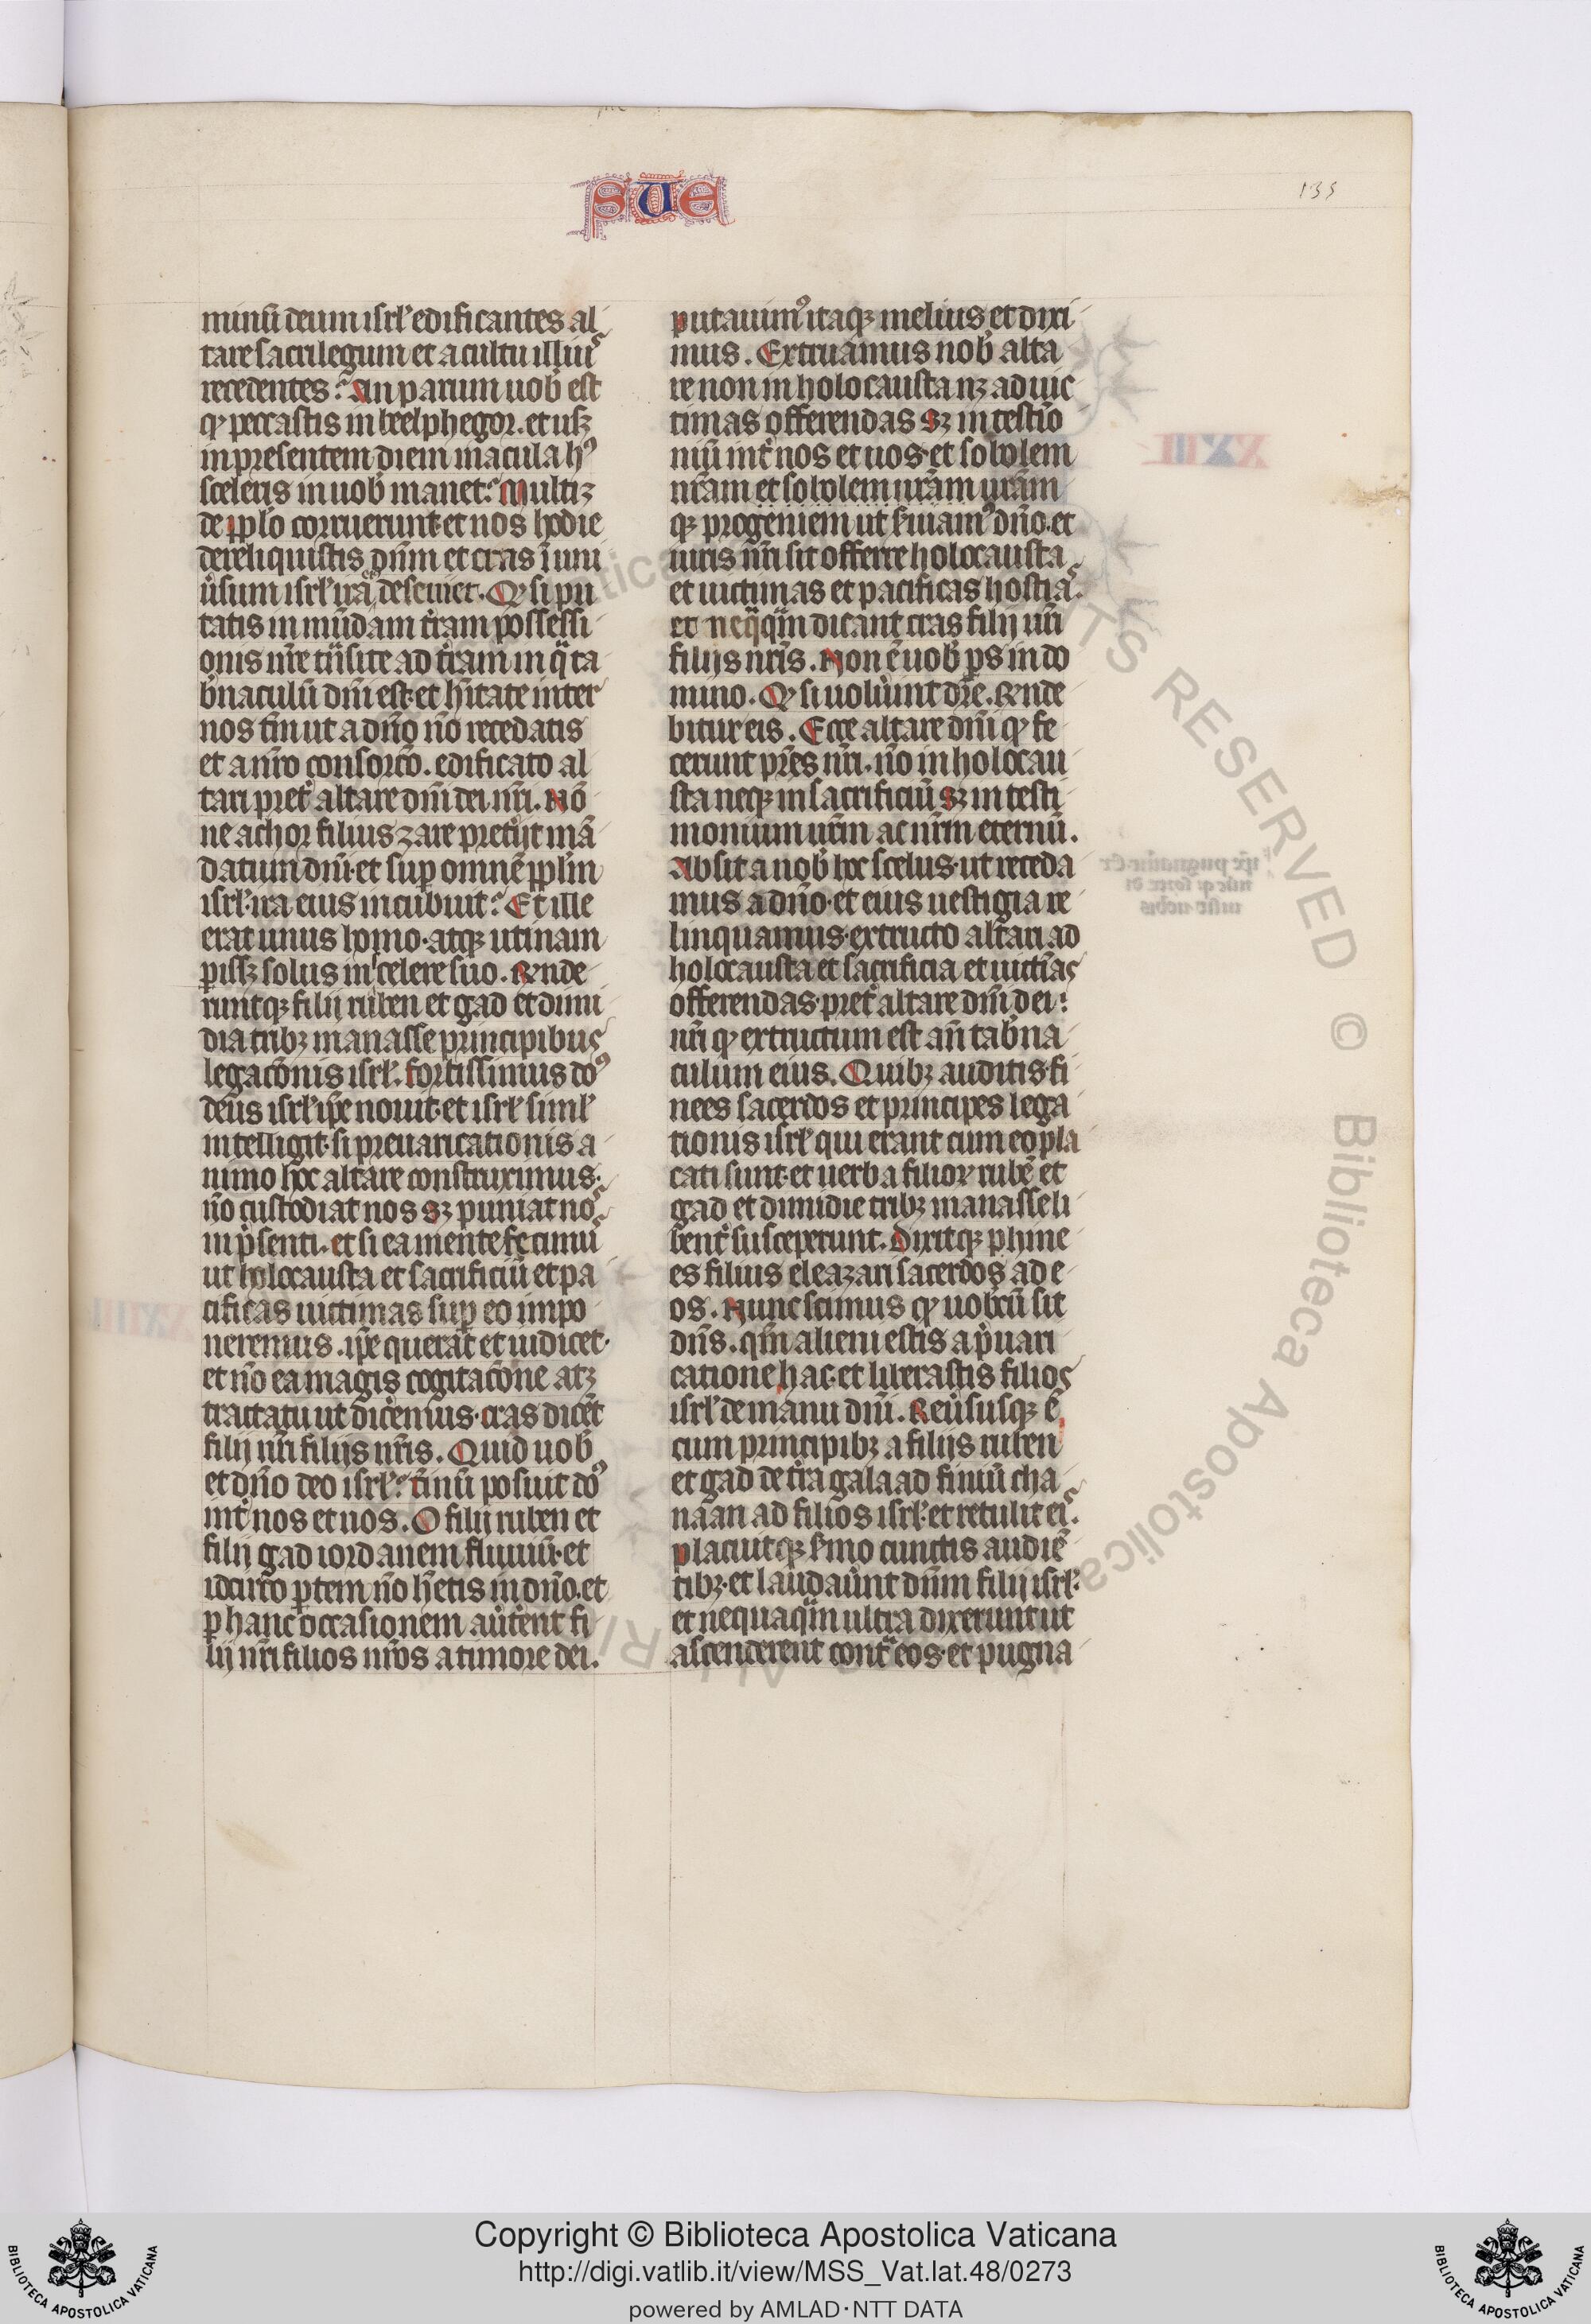 SUE
135
minū deum isrl' edificantes al
tare sacrilegum et a cultu illius
recedentes? An parum uob̄ est
qꝫ peccastis in beelphegor. et usqꝫ
in presentem diem macula hꝰ
sceleris in uob̄ manet? Multiqꝫ
de pplo corruerunt et nos hodie
dereliquistis dn̄m et cras ī uni
ūsum isrl' ira eiꝰ deseuiet. Qꝫ si pu
tatis inmūdam tr̄am possessi
onis ur̄e tn̄site ad tr̄am in qᵃ ta
b̄naculū dn̄i est. et hītate inter
nos tm̄ ut a dn̄o nō recedatis
et a nr̄o consorcō. edificato al
tari pret̄ altare dn̄i dei nr̄i. Nō
ne achor filius zare pret̄ijt mā
datum dn̄i. et sup̄ omnē pplm̄
isrl'. ira eius incubuit? Et ille
erat unus homo. atqꝫ utinam
p̱issꝫ solus in scelere suo. R̄nde
runtqꝫ filij ruben et gad et dimi
dia tribꝫ manasse principibus
legacōnis isrl'. fortissimus dōꝰ
deus isrl' ip̄e nouit. et isrl' siml'
intelligit. si preuaricationis a
nimo hoc altare construximus.
nō custodiat nos sꝫ puniat nos
in p̄senti. et si ea mente fecimus
ut holocausta et sacrificiū et pa
cificas uictimas sup̄ eo impo
neremus. ip̄e querat et iudicet.
et nō ea magis cogitacōne atqꝫ
tractatu ut dicem̄us. cras dicēt
filij ur̄i filijs nr̄is. Quid uob̄
et dn̄o deo isrl'? t̄minū posuit dōꝰ
int̄ nos et uos. O filij ruben et
filij gad iordanem fluuiū. et
idcirco p̱tem nō hētis in dn̄o. et
p̱ hanc occasionem au̅tent fi
lij ur̄i filios nr̄os a timore dei.
putauimꝰ itaqꝫ melius et dixi
mus. Extruamus nob̄ alta
re non in holocausta nꝫ ad uic
timas offerendas sꝫ in testīo
niū int̄ nos et uos. et sobolem
nr̄am et sobolem ur̄am ur̄am
qꝫ progeniem ut s̄uiamꝰ dn̄o. et
iuris nr̄i sit offerre holocausta
et uictimas et pacificas hostias.
et neqqᵃm dicant cras filij ur̄i
filijs nr̄is. Non ē uob̄ p̱s in do
mino. Qꝫ si uolūint dr̄e. R̄nde
bitur eis. Ecce altare dn̄i qꝫ fe
cerunt pr̄es nr̄i. nō in holocau
sta neqꝫ in sacrificiū sꝫ in testi
monium ur̄m ac nr̄m eternū.
Absit a nob̄ hoc scelus. ut receda
mus a dn̄o. et eius uestigia re
linquamus. extructo altari ad
holocausta et sacrificia et uictīas
offerendas. pret̄ altare dn̄i dei
nr̄i qꝫ extructum est an̄ tab̄na
culum eius. Quibꝫ auditis. fi
nees sacerdos et principes lega
tionis isrl' qui erant cum eo pla
cati sunt. et uerba filioꝝ rubē et
gad et dimidie tribꝫ manasse li
bent̄ susceperunt. Dixitqꝫ phine
es filius eleazari sacerdos ad e
os. Nunc scimus qꝫ uobcū sit
dn̄s. qm̄ alieni estis a p̄uari
catione hac. et liberastis filios
isrl' de manu dn̄i. Reūsusqꝫ ē
cum principibꝫ a filijs ruben
et gad de tr̄a galaad finiū cha
naan ad filios isrl'. et retulit eis.
placuitqꝫ s̄mo cunctis audiē
tibꝫ. et laudaūnt dn̄m filij isrl'.
et nequaqᵃm ultra dixerunt ut
ascenderent contᵃ eos. et pugna
ALL RIGHTS RESERVED © Biblioteca Apostolica Vaticana
Copyright © Biblioteca Apostolica Vaticana
http://digi.vatlib.it/view/MSS_Vat.lat.48/0273
powered by AMLAD·NTT DATA
BIBLIOTECA APOSTOLICA VATICANA
BIBLIOTECA APOSTOLICA VATICANA